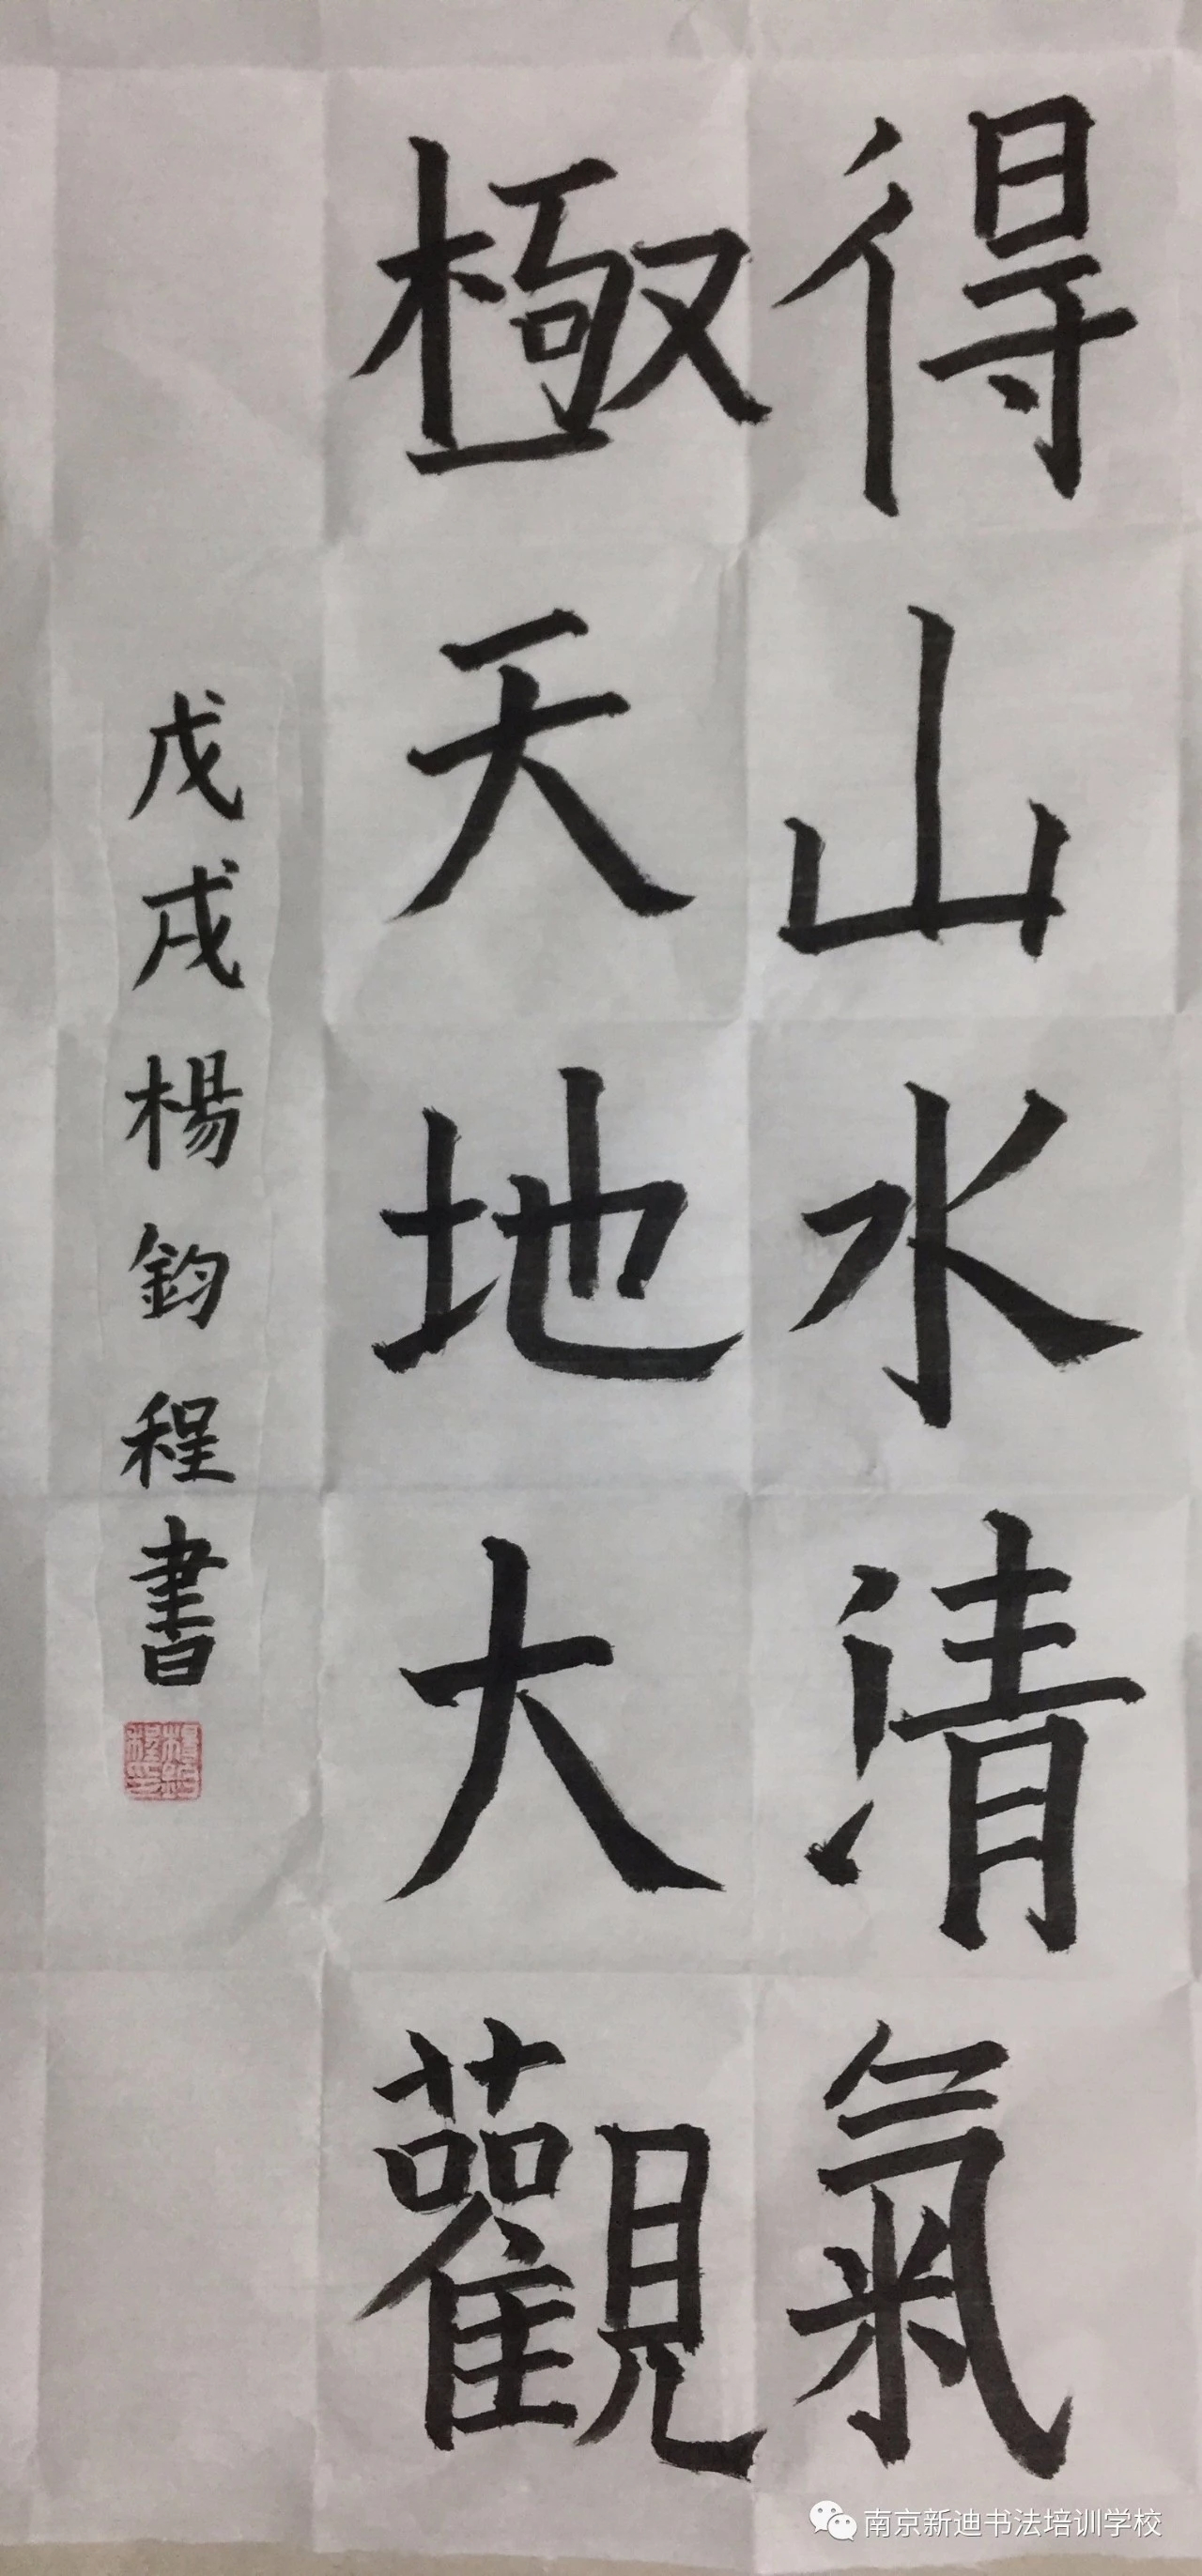 得山水清氣
極天地大觀
戊戌楊鈞程書
楊鈞程印
南京新迪书法培训学校